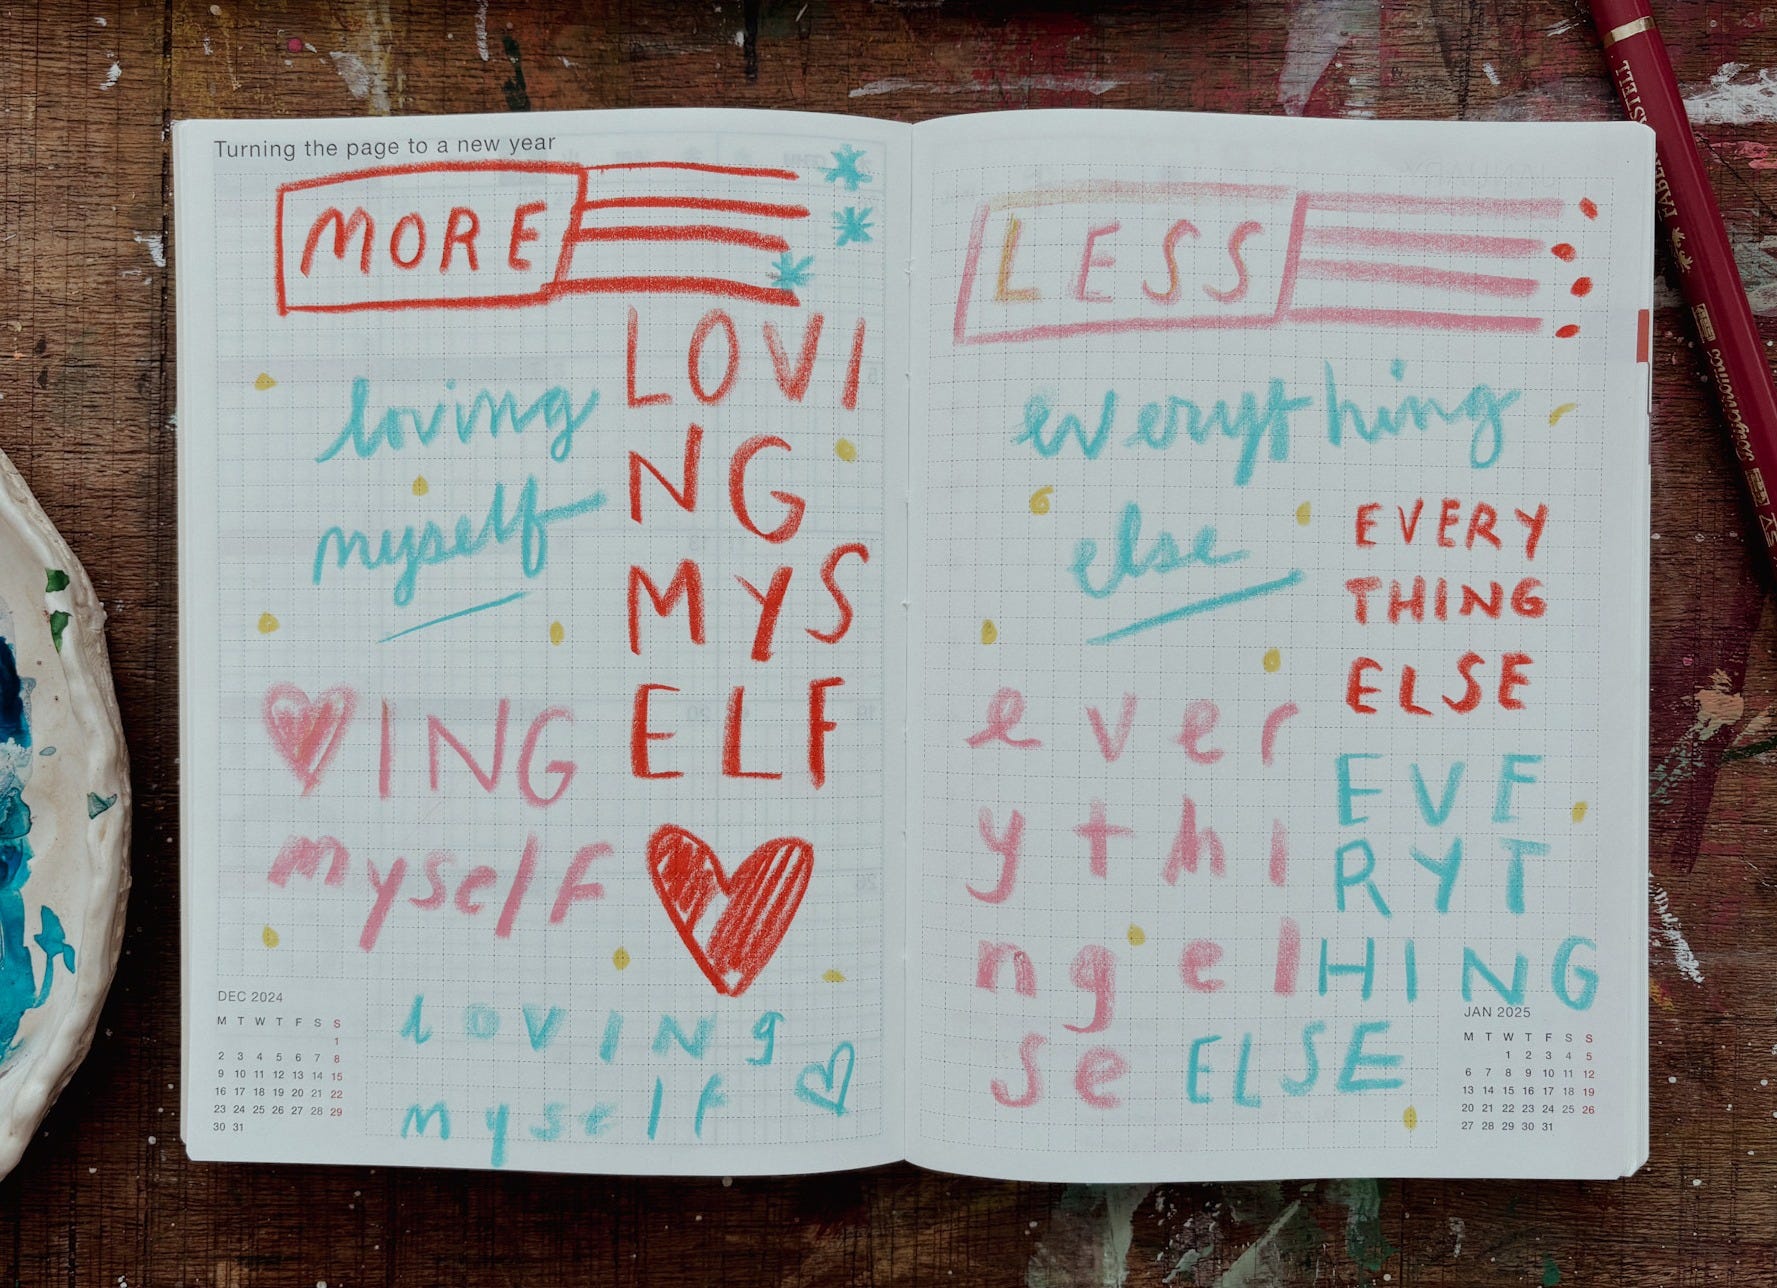 Turning the page to a new year
MORE
loving
myself
LOVI
NG
MYS
ELF
♥ING
myself
loving
myself
DEC 2024
M T W T F S S
1
2 3 4 5 6 7 8
9 10 11 12 13 14 15
16 17 18 19 20 21 22
23 24 25 26 27 28 29
30 31
LESS
everything
else
EVERY
THING
ELSE
ever
ythi
ngel
se
EVE
RYT
HING
ELSE
JAN 2025
M T W T F S S
1 2 3 4 5
6 7 8 9 10 11 12
13 14 15 16 17 18 19
20 21 22 23 24 25 26
27 28 29 30 31